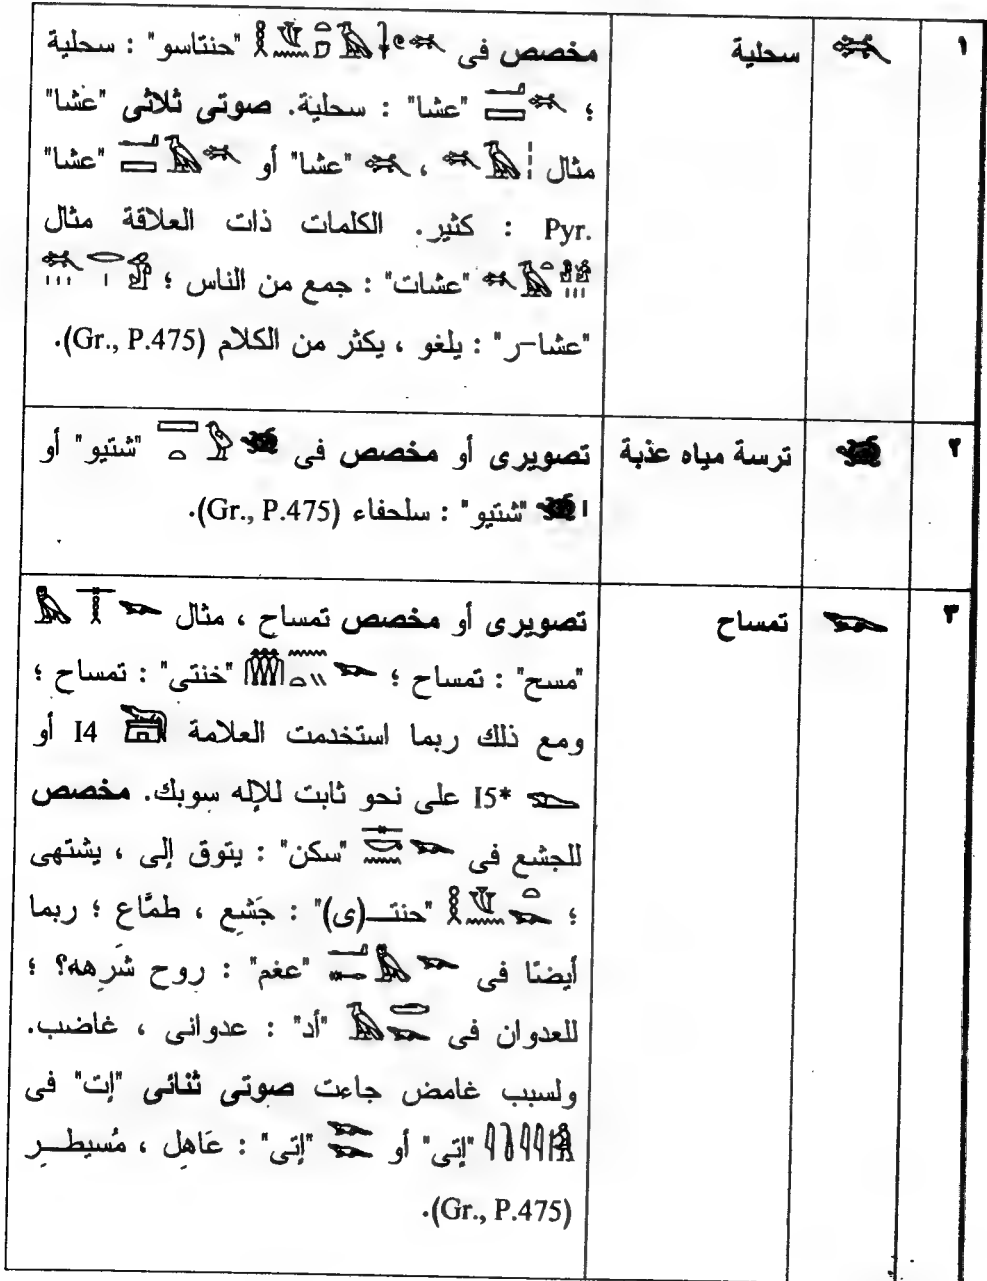 ١ سحلية مخصص فى "حنتاسو" : سحلية
؛ "عشا" : سحلية. صوتى ثلاثى "عشا"
مثال ، "عشا" أو "عشا"
Pyr. : كثير. الكلمات ذات العلاقة مثال
"عشات" : جمع من الناس ؛
"عشا-ر" : يلغو ، يكثر من الكلام (Gr., P.475).
٢ ترسة مياه عذبة تصويرى أو مخصص فى "شتيو" أو
"شتيو" : سلحفاء (Gr., P.475).
٣ تمساح تصويرى أو مخصص تمساح ، مثال
"مسح" : تمساح ؛ "خنتى" : تمساح ؛
ومع ذلك ربما استخدمت العلامة I4 أو
I5* على نحو ثابت للإله سوبك. مخصص
للجشع فى "سكن" : يتوق إلى ، يشتهى
؛ "حنتـــ(ى)" : جَشِع ، طمَّاع ؛ ربما
أيضًا فى "عغم" : روح شَرِهه؟ ؛
للعدوان فى "أد" : عدوانى ، غاضب.
ولسبب غامض جاءت صوتى ثنائى "إت" فى
"إتى" أو "إتى" : عَاهِل ، مُسيطــرِ
(Gr., P.475).